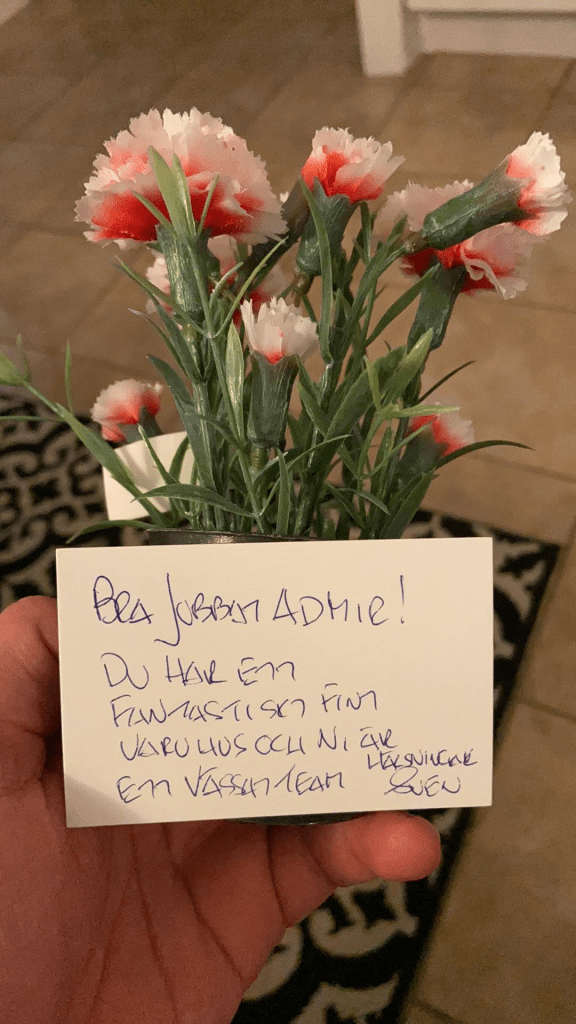 BRA JOBBAT ADMIR!
DU HAR ETT
FANTASTISKT FINT
VARUHUS OCH NI ÄR
ETT VASSAT TEAM
HÄLSNINGAR
SVEN